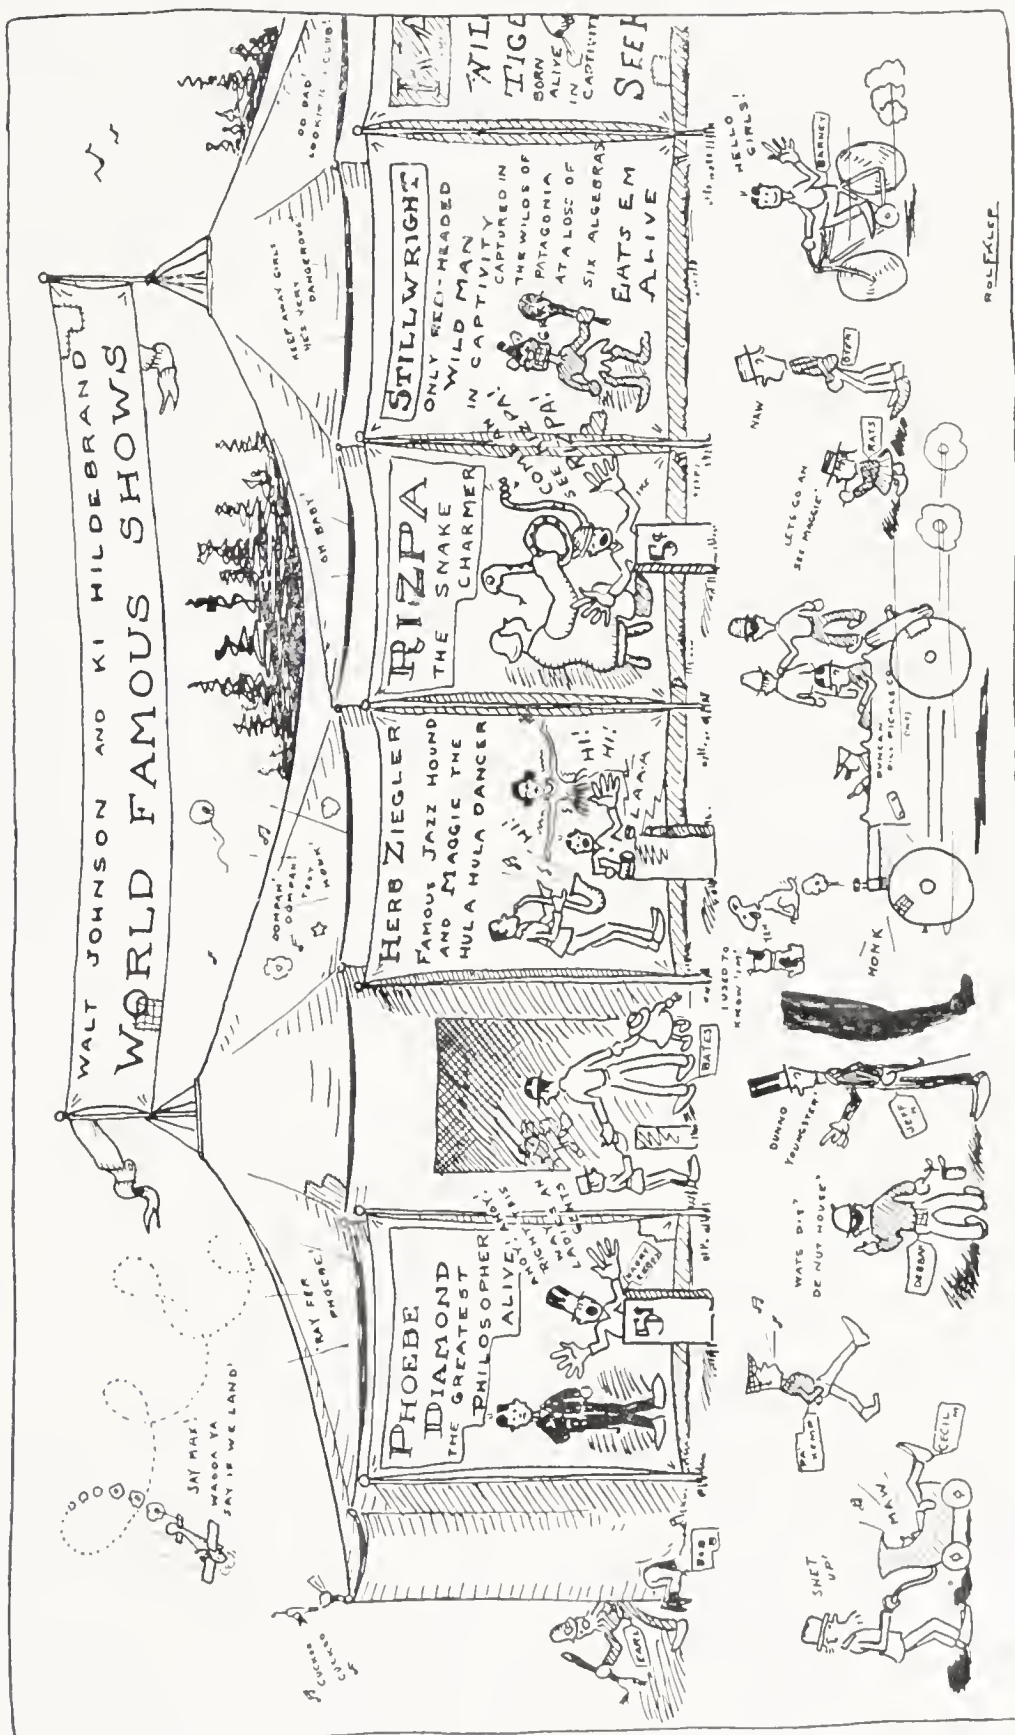 WALT JOHNSON AND KI HILDEBRAND
WORLD FAMOUS SHOWS
SAY MAX!
WADDA YA
SAY IF WE LAND'
CUCKOO
CUCKOO
'RAY FER
PHOEBE!
OOMPAH'
OOMPAH!
MONK'
OH BABY!
KEEP AWAY GIRLS
HE'S VERY
DANGEROUS
OO DAD!
LOOKIT
CLUB!
PHOEBE
DIAMOND
THE GREATEST
PHILOSOPHER
ALIVE
AHOY!
AHOY!
RIGHT THIS
WAY
LADIES AN
GENTS
5¢
EARL
BOB
BATES
HERB ZIEGLER
FAMOUS JAZZ HOUND
AND MAGGIE THE
HULA HULA DANCER
HI!
HI!
HI!
BLAAA
RIZPA
THE SNAKE
CHARMER
COME
SEE RIZPA!
5¢
STILLWRIGHT
ONLY RED-HEADED
WILD MAN
IN CAPTIVITY
CAPTURED IN
THE WILDS OF
PATAGONIA
AT A LOSS OF
SIX ALGEBRAS
EATS EM
ALIVE
GRR
TIGE
BORN
ALIVE
IN
CAPTIVIT
SEE
SHET
UP!
MAW
CECIL
M
PA
KEMP
WATS DIS'
DE NUT HOUSE'
DEBBAN
DUNNO
YOUNGSTER!
JEFF
N
I USED TO
KNOW 'IM!
TIM
MONK
DUNCAN
DILL PICKLE CO.
LETS GO AN
SEE MAGGIE'
RATS
NAW
DYER
HELLO
GIRLS!
BARNEY
ROLF KLEP